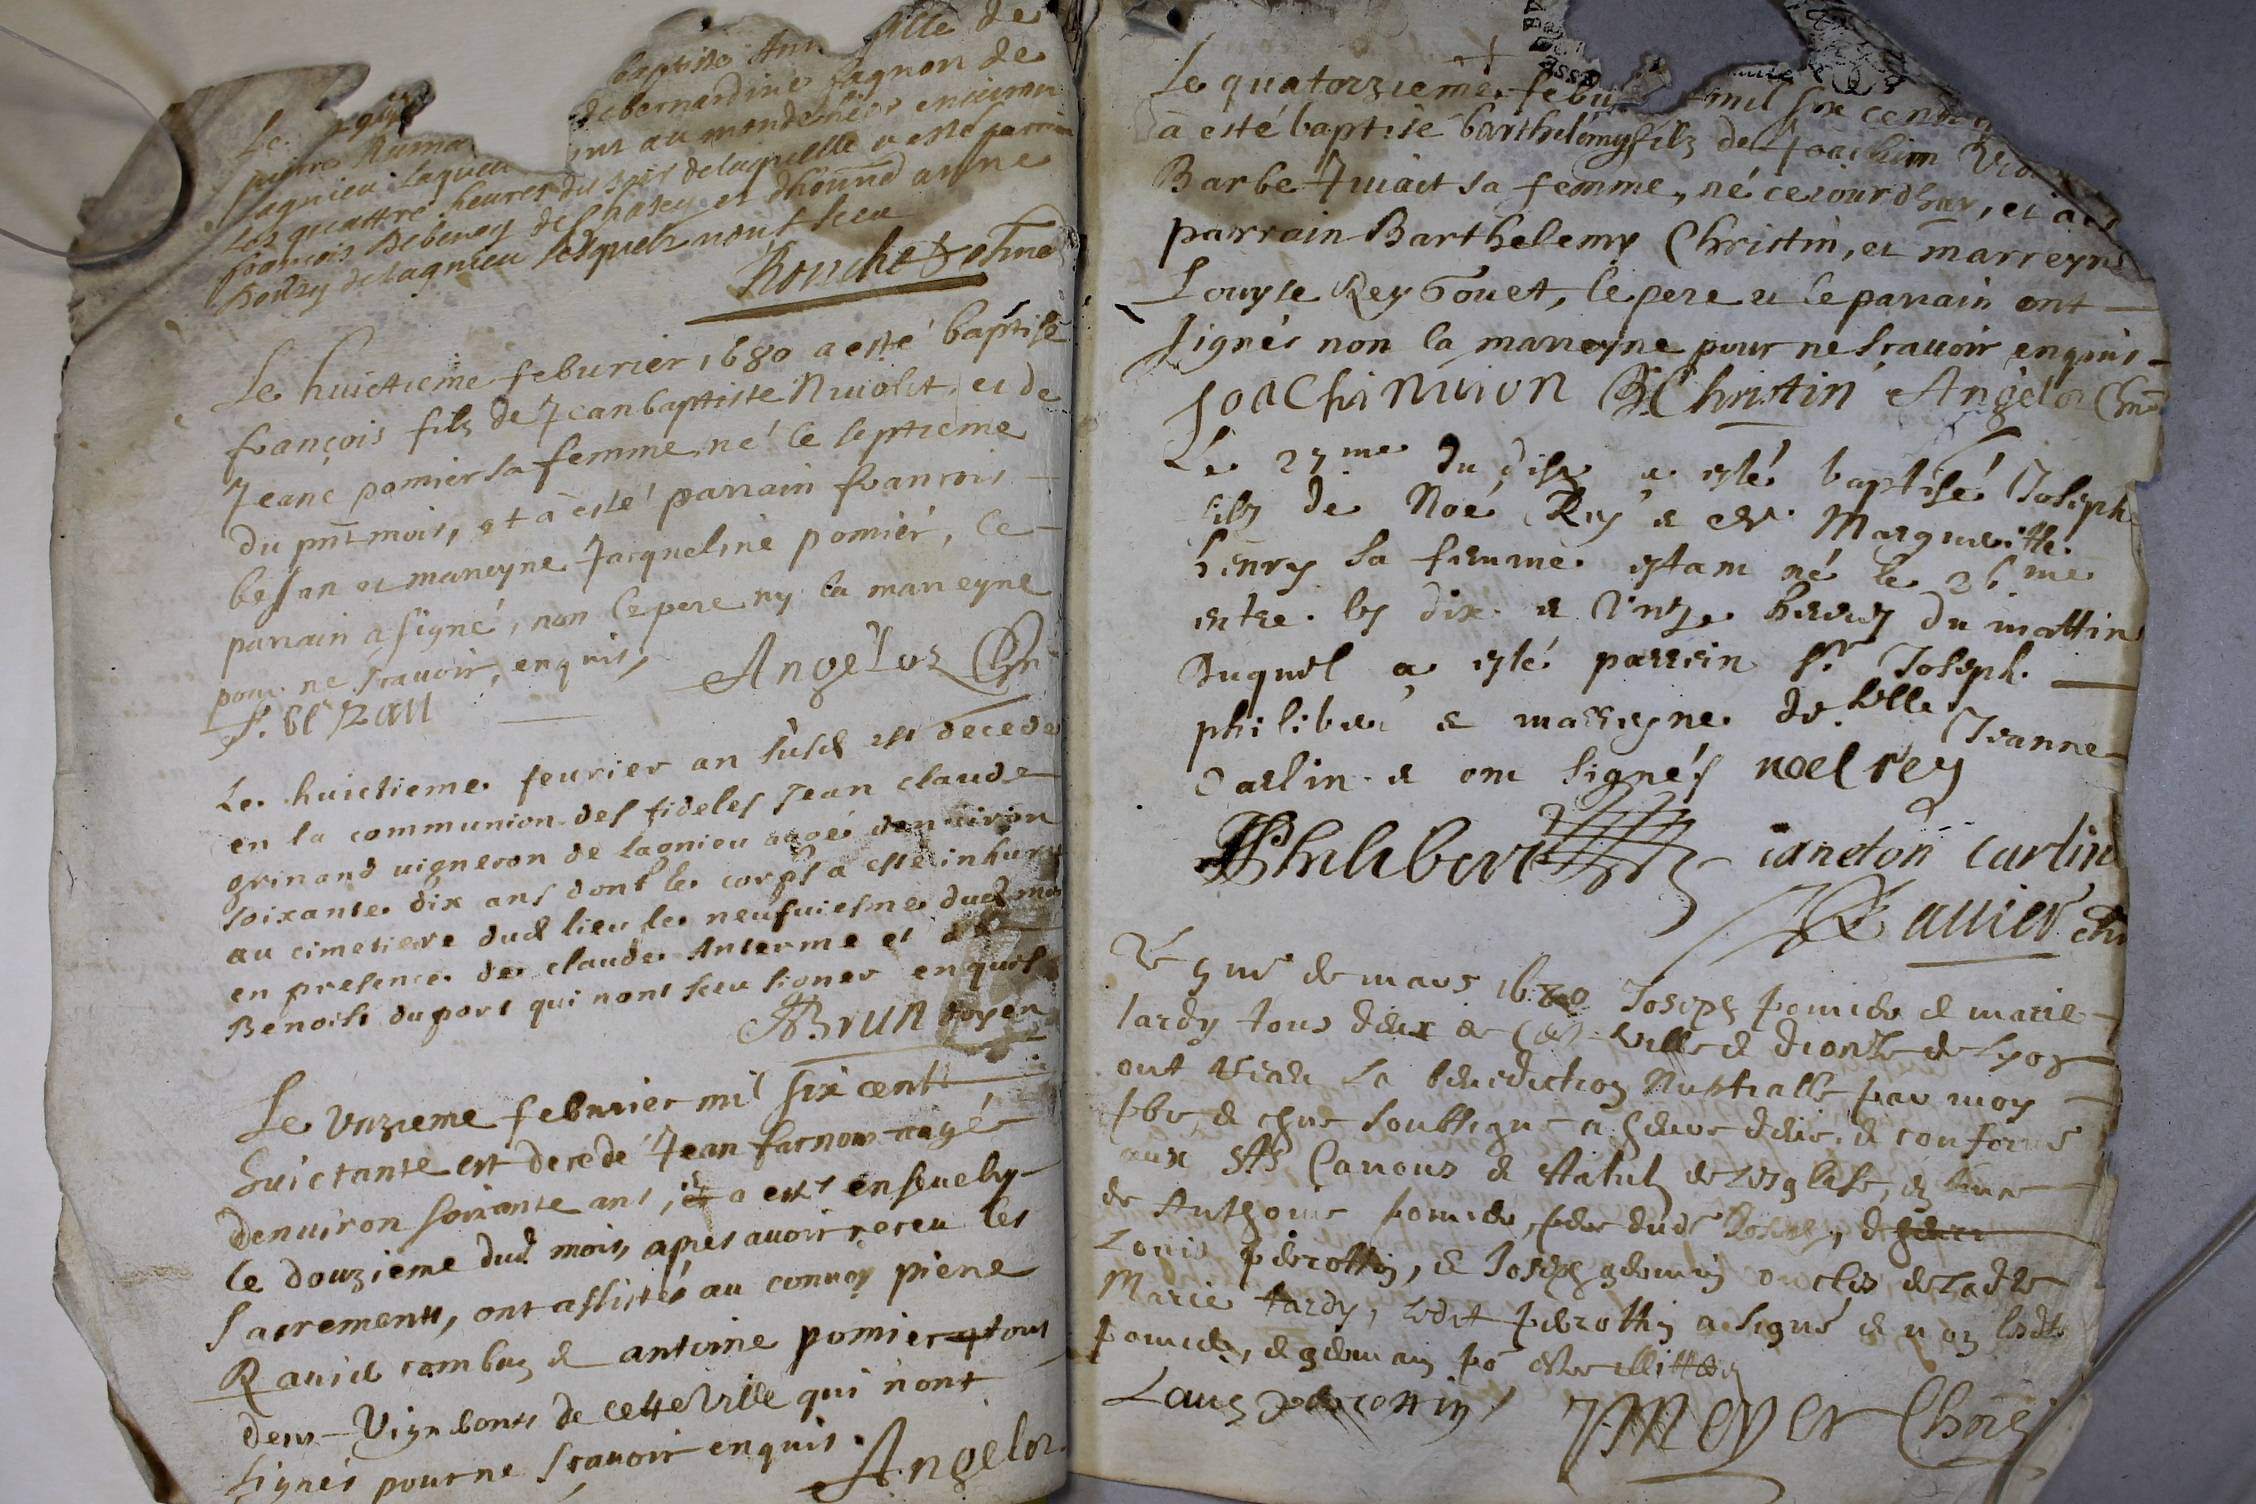 baptisé Ann fille de
Le
pierre Ruma de bernardine fagnon de
lagnieu laquell au monde hier enuiron
les quattre heures du soir de laquelle a esté parrain
françois Debeney de et d'honn anne
de lagnieu lesquels n'ont sceu
Le huictieme feburier 1680 a esté baptisé
françois filz de Jean baptiste Nuiolet, et de
Jeane pomier sa femme, né le septieme
du pnt mois, et à esté parrain francois
bessan et marreyne Jacqueline pomier, le
parrain a signé, non le pere ny la marreyne
pour ne scauoir, enquis, Angeloz Chn
Le huictieme feurier an susd est decede
en la communion des fideles Jean claude
grinand uigneron de lagnieu aagé denuiron
soixante dix ans dont le corps a esté inhumé
au cimetiere dud lieu le neufuiesme dud mois
en presence de claude Anterme et de
Benoist duport qui nont sceu signer enquis
Brun doyen
Le Vnzieme feburier mil six cents
huictante est decedé Jean farnou aagé
denuiron soixante ans, et a esté enseuely
le douzieme dud mois, apres auoir receu les
sacrements, ont assistés au conuoy pierre
Rauier combaz & antoine pomier tous
deux Vignerons de cette Ville qui n'ont
signés pour ne scauoir enquis. Angeloz
Le quatorzieme febu mil six cent
à esté baptisé barthelemy filz de Joachim
Barbe Juiait sa femme, né ce iourdhuy, et a
parrain Barthelemy Christin, et marreyne
Louyse Rey Gouet, le pere et le parrain ont
signés non la marreyne pour ne scauoir enquis
Joachin uion B Christin Angeloz Chn
Le 27me du dist a esté baptisé Joseph
filz de Noé Rey & de Margueritte
henry sa femme estant né le 26me
entre les dix & unze heures du mattin
Duquel a esté parrein Sr Joseph
philibert & marreyne delle Jeanne
Carlin & ont signés noel rey
Philibert ianeton carlin
Rauier chn
Le de mars 1680 Joseph pomier & marie
tardy tous deux de ville & diocese de Lyon
ont receu La benediction Nuptialle par moy
pbre & chne soubsigné a heure deüe, & conforme
aux Sts Canons & statuts de Lesglise,
de Anthoine pomier, pere dud Joseph, &
Louis perrottin, & Joseph germain oncles de Ladte
Marie tardy, Ledit perrottin a signé & non lesdts
pomier, & germain po estre illittés
Louis perrottin J Meyer Chne